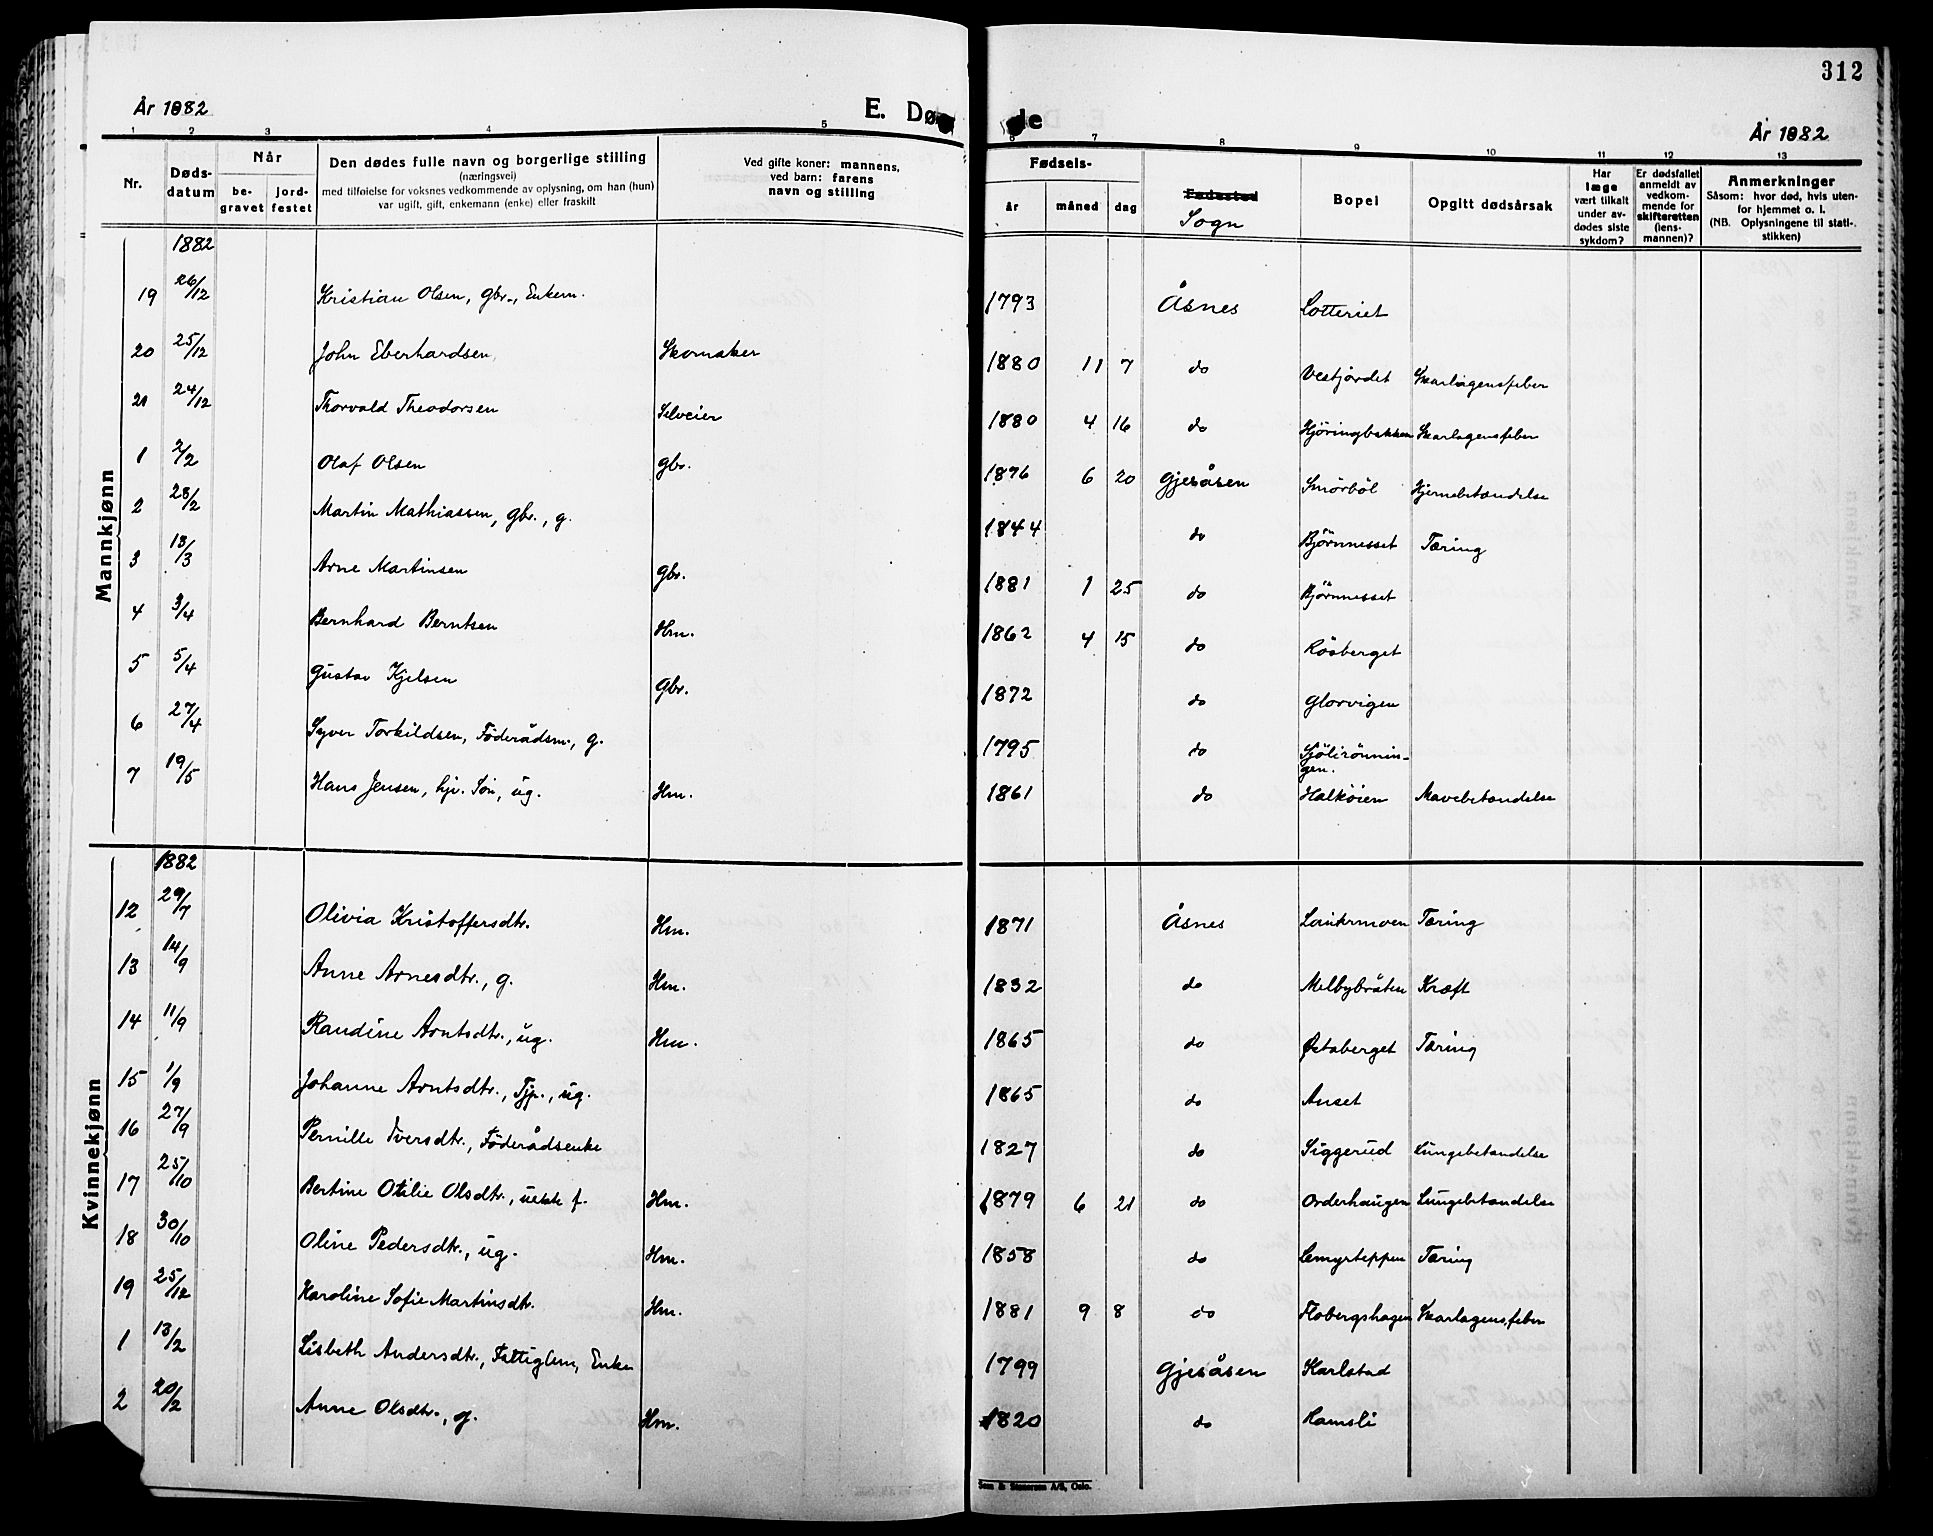 312
År 1882
E. Dø de
År 1882
1 2 3 4 5 6 7 8 9 10 11 12 13
Nr. Dødsdatum Når begravet jordfestet
Den dødes fulle navn og borgerlige stilling
(næringsvei)
med tilføielse for voksnes vedkommende av oplysning, om han (hun)
var ugift, gift, enkemann (enke) eller fraskilt
Ved gifte koner: mannens,
ved barn: farens
navn og stilling
Fødsels-
år måned dag
Fødested
Sogn
Bopel
Opgitt dødsårsak
Har læge vært tilkalt under avdødes siste sykdom?
Er dødsfallet anmeldt av vedkommende for skifteretten (lensmannen)?
Anmerkninger
Såsom: hvor død, hvis utenfor hjemmet o. l.
(NB. Oplysningene til statistikken)
Mannkjønn
1882
19 26/12 Kristian Olsen, Gbr., Enkem. 1793 Åsnes Lotteriet
20 25/12 John Eberhardsen Skomaker 1880 11 7 do Vestjordet Skarlagensfeber
21 24/12 Thorvald Theodorsen Selveier 1880 4 16 do Hjöringbakken Skarlagensfeber
1 2/2 Olaf Olsen Gbr. 1876 6 20 Gjesåsen Smörböl Hjernebetændelse
2 28/2 Martin Mathiassen, Gbr., g. 1844 do Björnnesset Tæring
3 13/3 Arne Martinsen Gbr. 1881 1 25 do Björnnesset
4 3/4 Bernhard Berntsen Hm. 1862 4 15 do Råsberget
5 5/4 Gustav Kjelsen Gbr. 1872 do Glorvigen
6 27/4 Syver Torkildsen, Föderådsm., g. 1795 do Sjölirönningen.
7 19/5 Hans Jensen, hjv. Sön, ug. Hm. 1861 do Halköien Mavebetændelse
Kvinnekjønn
1882
12 29/7 Olivia Kristoffersdtr. Hm. 1871 Åsnes Lautermoen Tæring
13 14/9 Anne Arnesdtr., g. Hm. 1832 do Melbybråten Kræft
14 11/9 Randine Arntsdtr., ug. Hm. 1865 do Østaberget Tæring
15 1/9 Johanne Arntsdtr., Tjp., ug. 1865 do Anset
16 27/9 Pernille Iversdtr., Föderådsenke 1827 do Siggerud Lungebetændelse
17 25/10 Bertine Otilie Olsdtr., uekte f. Hm. 1879 6 21 do Orderhaugen Lungebetændelse
18 30/10 Oline Pedersdtr., ug. Hm. 1858 do Lemyrteppen Tæring
19 25/12 Karoline Sofie Martinsdtr. Hm. 1881 9 8 do Flobergshagen Skarlagensfeber
1 13/2 Lisbeth Andersdtr., Fattiglem, Enke 1799 Gjesåsen Karlstad
2 20/2 Anne Olsdtr., g. Hm. 1820 do Hamsli
Sem & Stenersen A/S, Oslo.